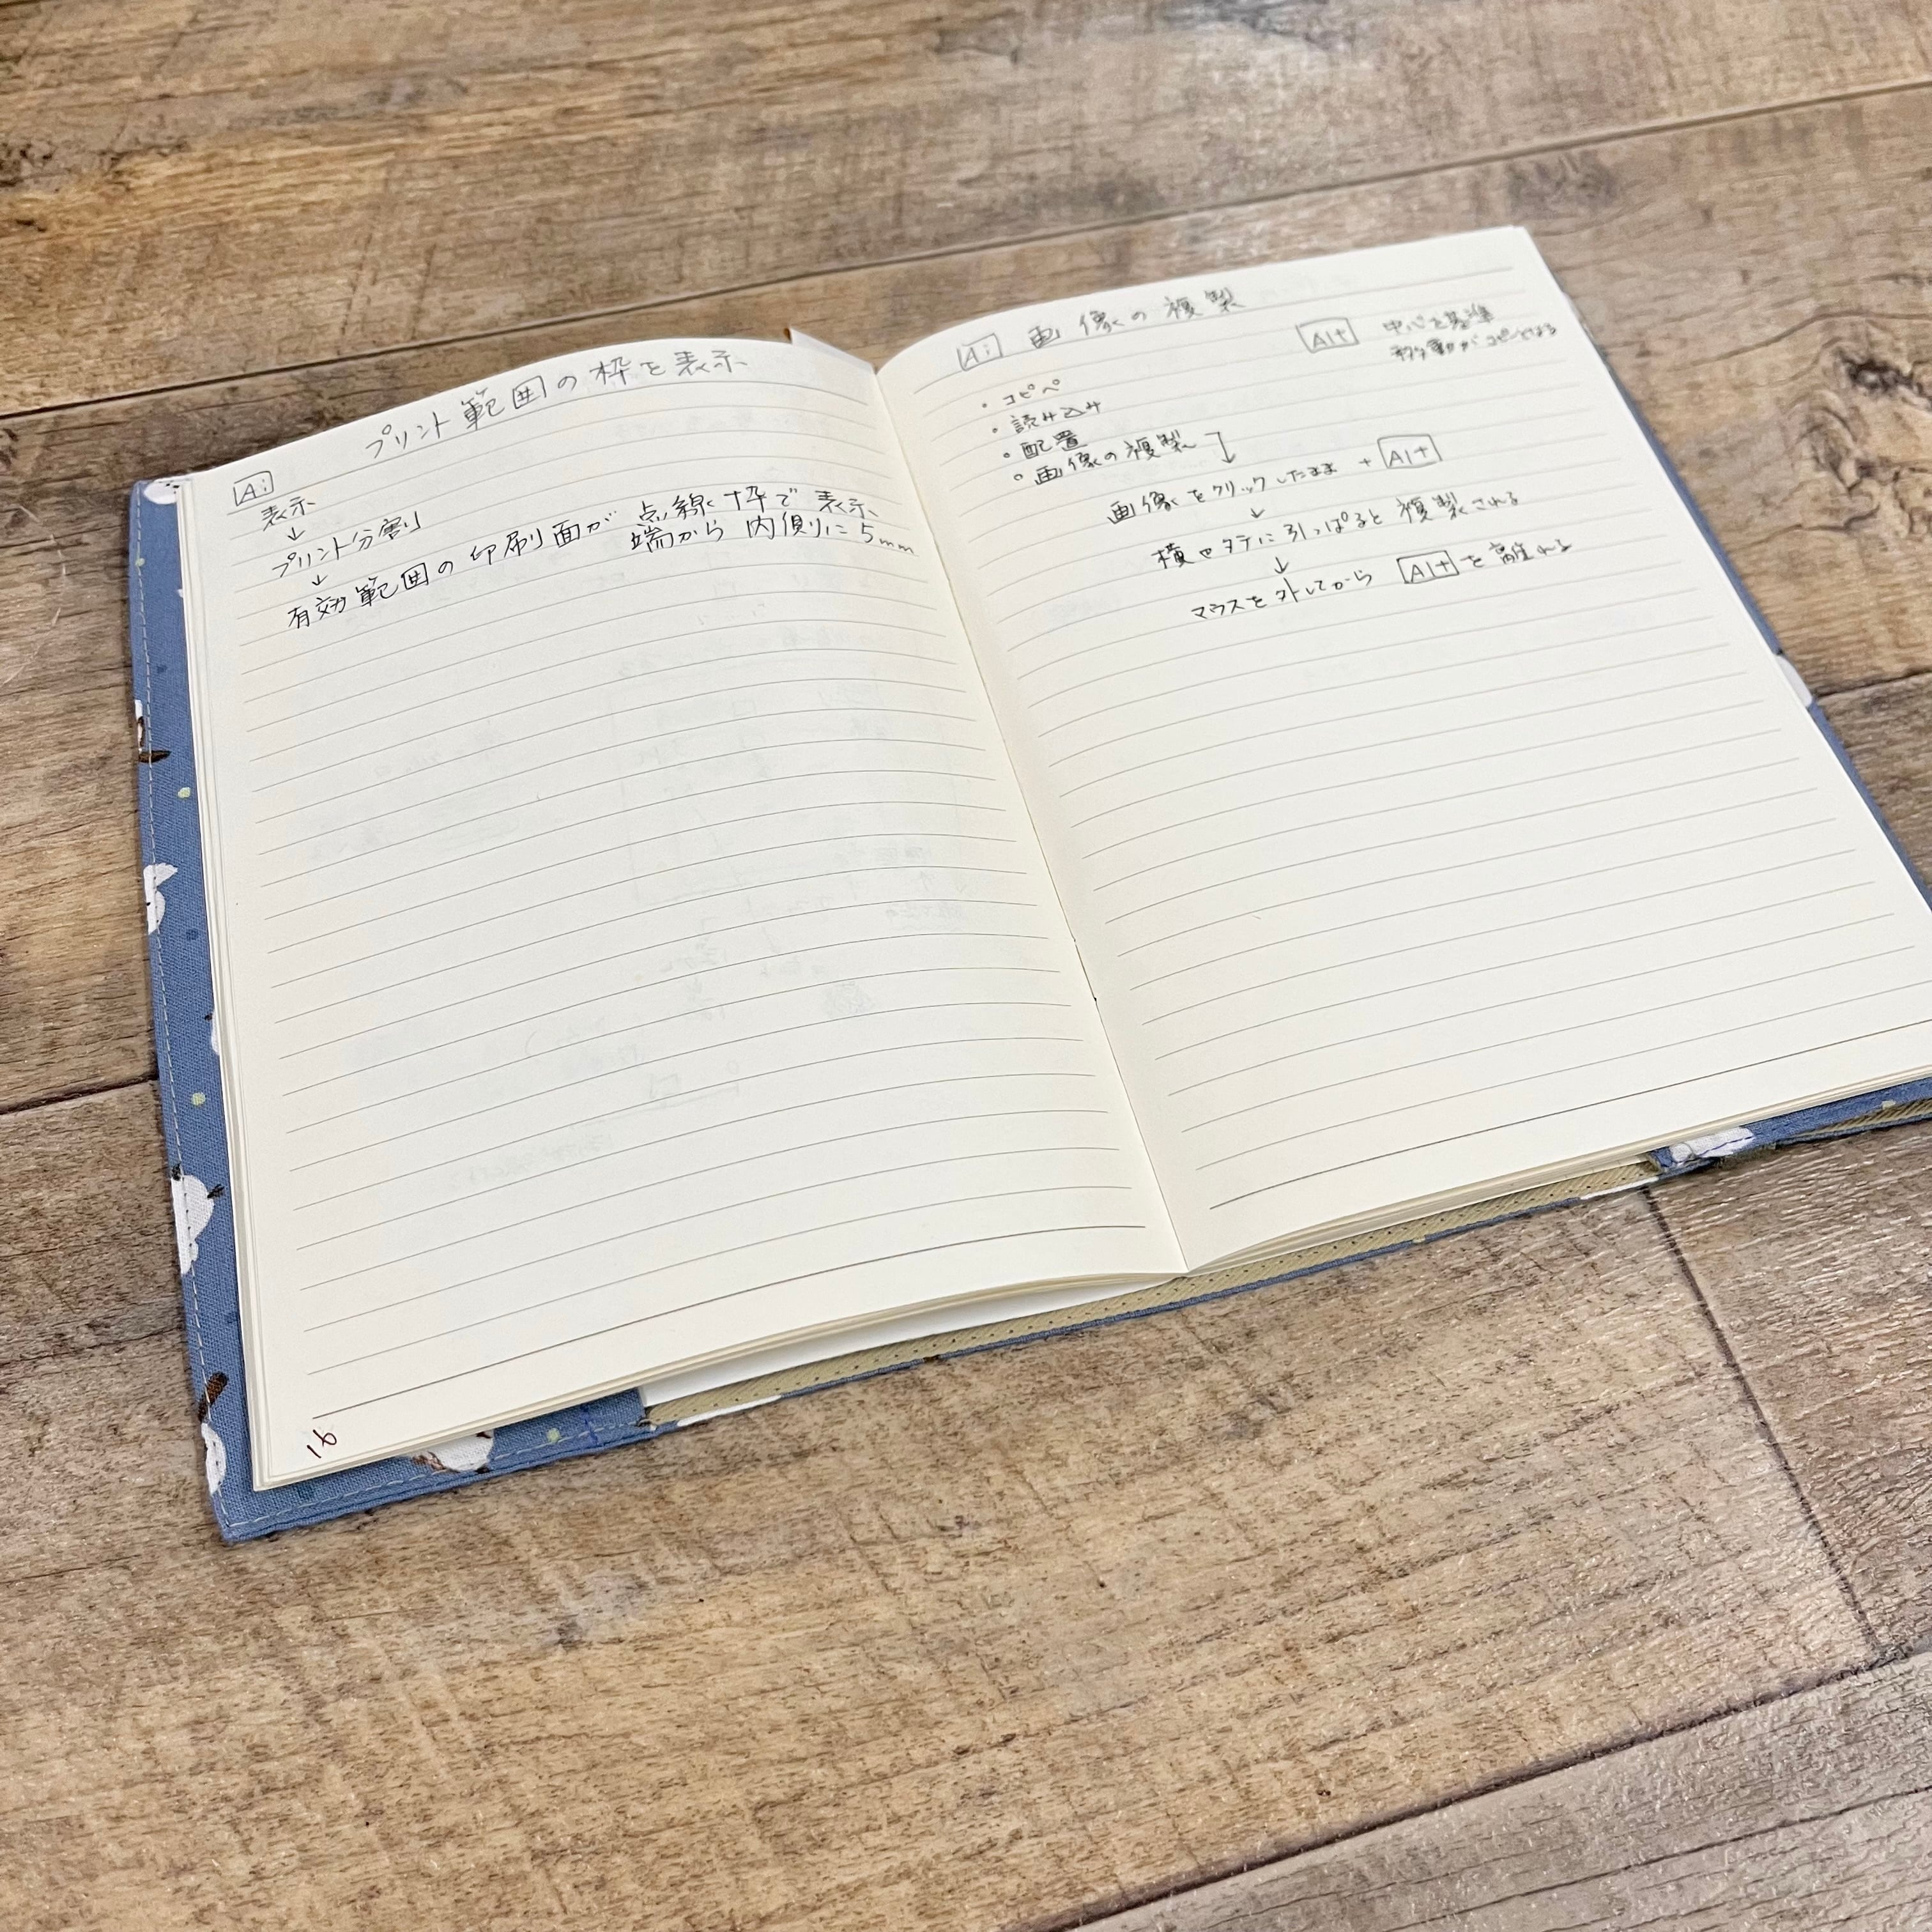 プリント範囲の枠を表示
Ai
表示
↓
プリント分割
↓
有効範囲の印刷面が 点線枠で表示
端から 内側に5mm
16
Ai 画像の複製
Alt 中心を基準
移動がコピーとなる
・コピペ
・読み込み
・配置
・画像の複製
↓
画像をクリックしたまま + Alt
↓
横やタテに引っぱると 複製される
↓
マウスを外してから Alt を離れる